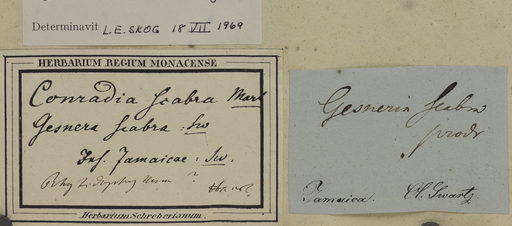 Determinavit L.E. SKOG 18 VII 1969
HERBARIUM REGIUM MONACENSE
Conradia scabra Mart
Gesnera scabra . Sw
Ins. Jamaicae . Sw.
?
Herbarium Schreberianum.
Gesneria scabra
prodr
Jamaica. Cl. Swartz